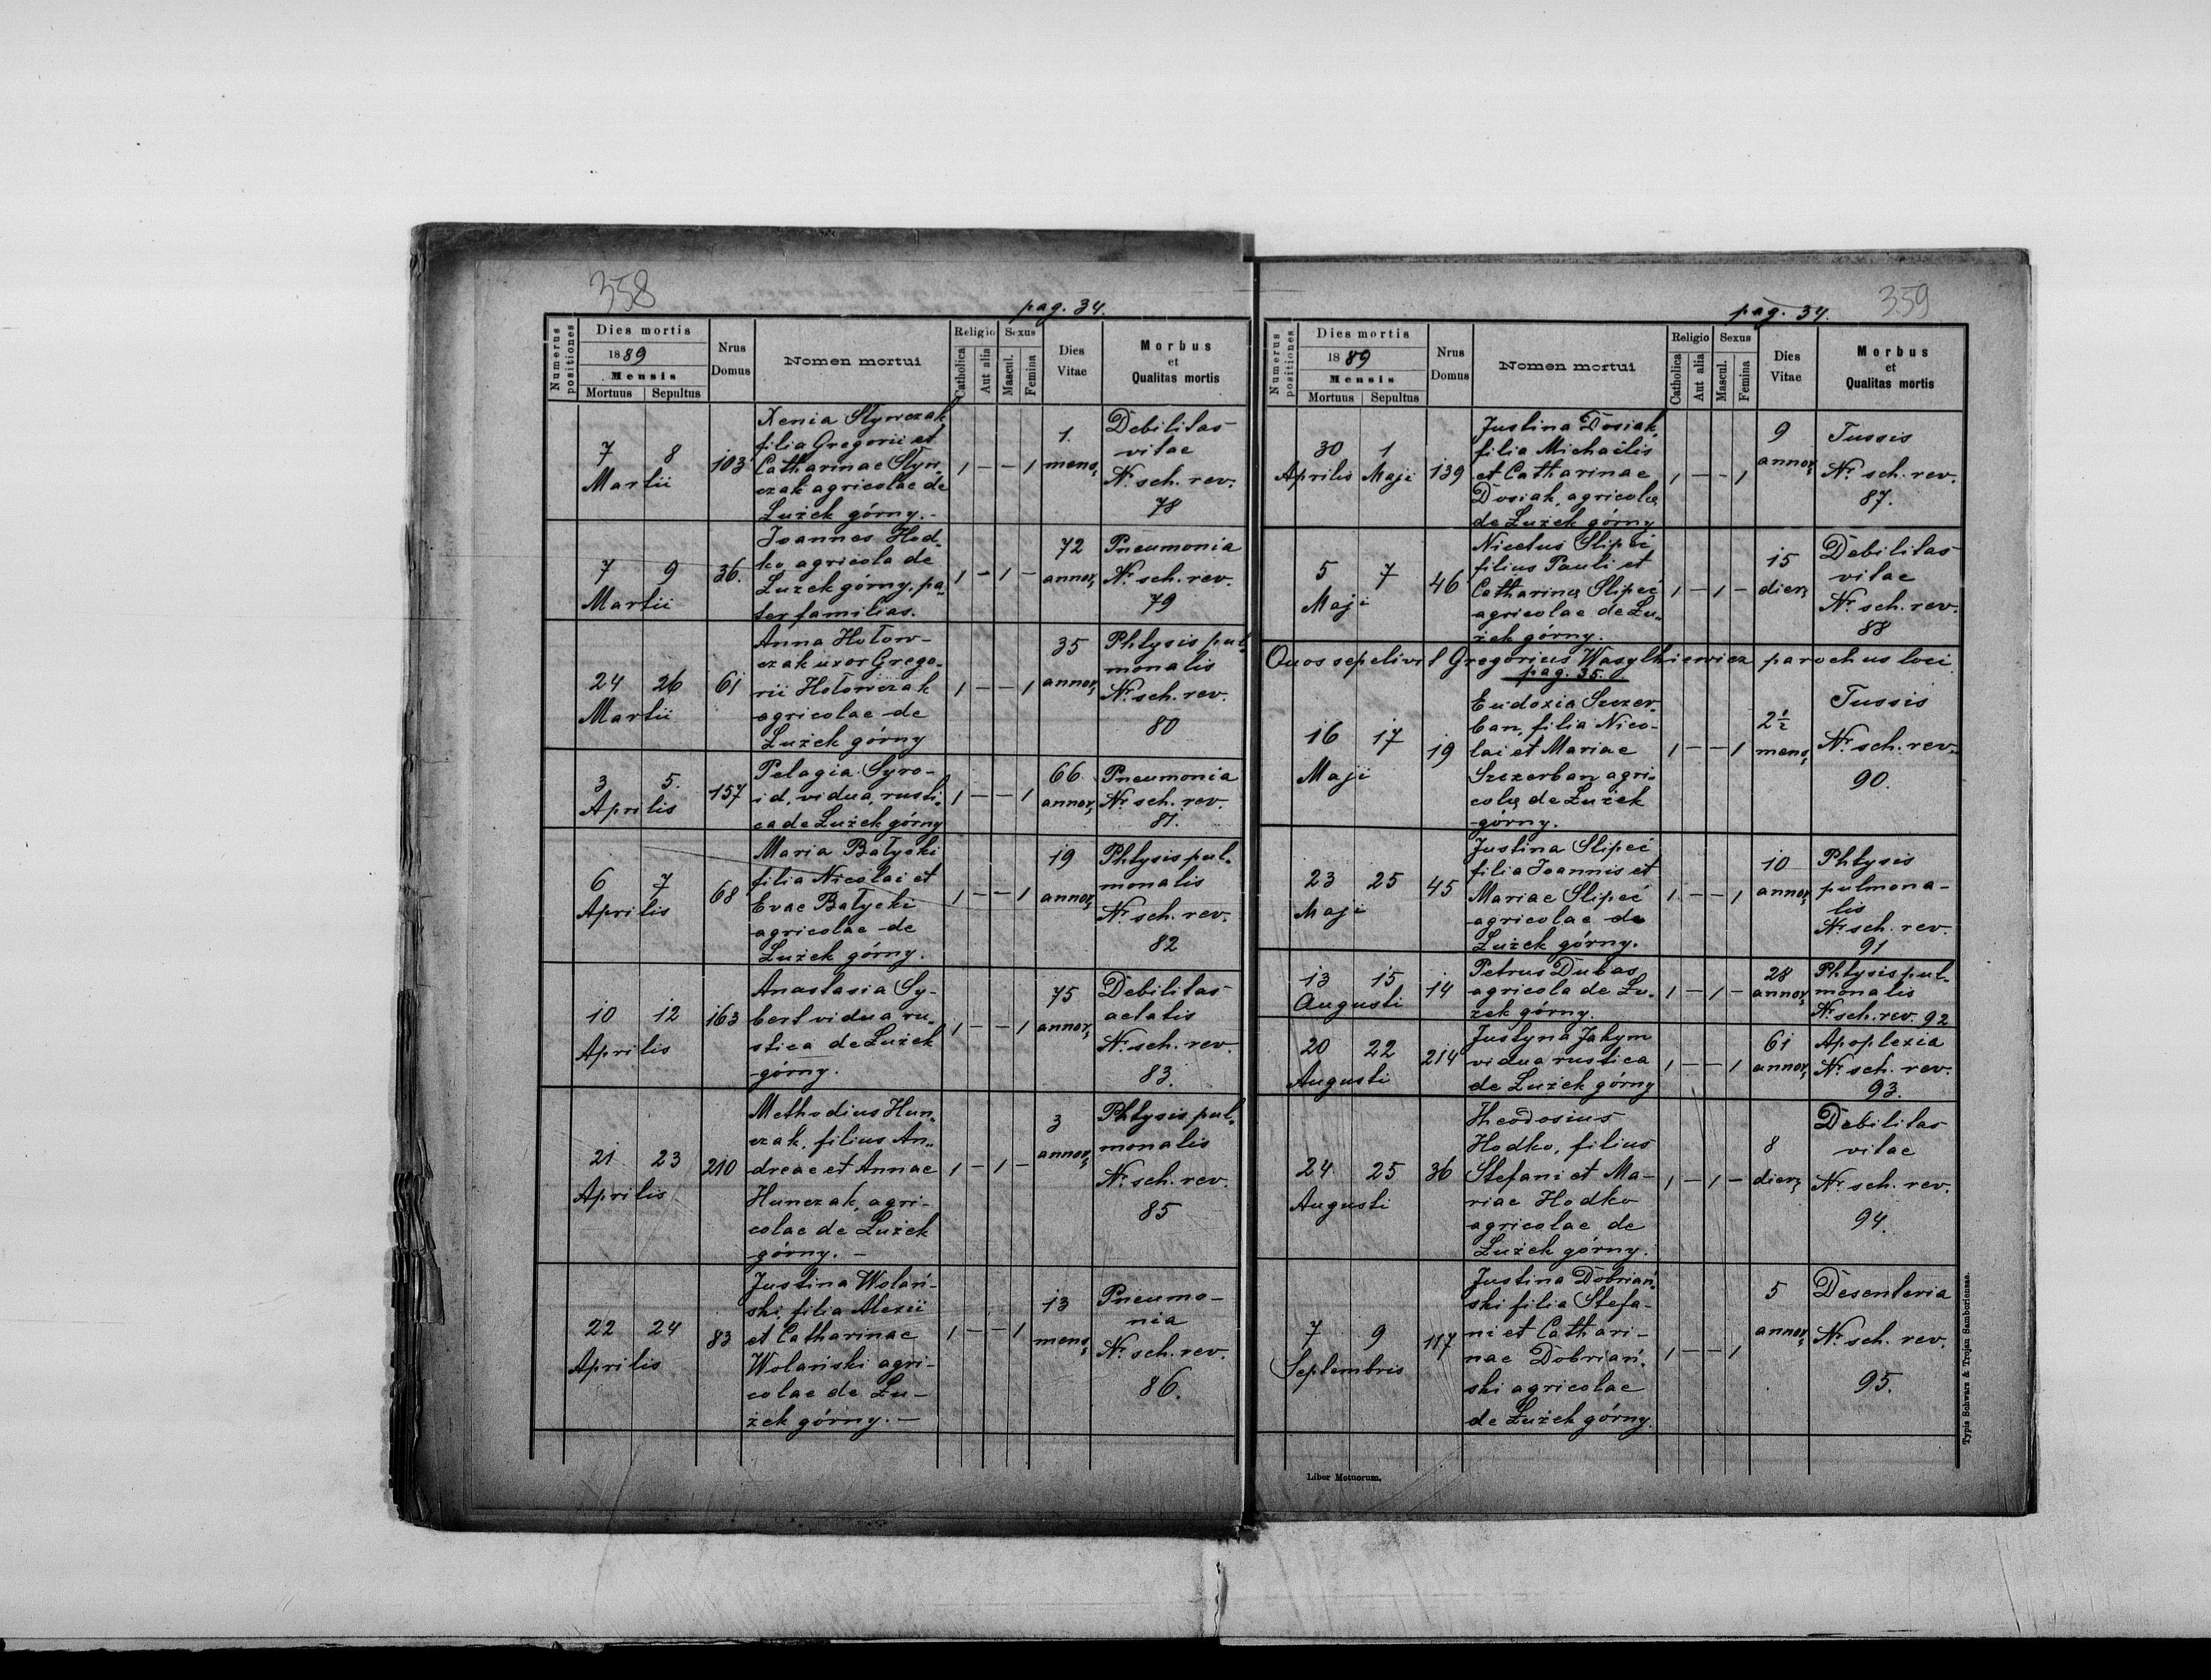 358
pag. 34.
Numerus positiones
Dies mortis
1889
Mensis
Mortuus Sepultus
Nrus Domus
Nomen mortui
Religio Sexus
Catholica
Aut alia
Mascul.
Femina
Dies Vitae
Morbus
et
Qualitas mortis
7 8
Martii
103
Xenia Stynczak
filia Gregorii et
Catharinae Styn„
czak agricolae de
Łużek górny. -
1 - - 1
1.
mens,
Debilitas
vitae
Nr. sch. rev.
78
7 9
Martii
36.
Joannes Hod„
ko agricola de
Łużek górny, pa„
ter familias.
1 - 1 -
72
annor,
Pneumonia
Nr. sch. rev.
79
24 26
Martii
61
Anna Hołow-
czak uxor Grego-
rii Hołowczak
agricolae de
Łużek górny
1 - - 1
35
annor,
Phtysis pul„
monalis
Nr. sch. rev.
80
3 5.
Aprilis
157
Pelagia Syro-
id, vidua, rusti„
ca de Łużek górny
1 - - 1
66
annor,
Pneumonia
Nr. sch. rev.
81.
6 7
Aprilis
68
Maria Batycki
filia Nicolai et
Evae Batycki
agricolae de
Łużek górny.
1 - - 1
19
annor,
Phtysis pul„
monalis
Nr. sch. rev.
82
10 12
Aprilis
163
Anastasia Sy-
bert vidua ru„
stica de Łużek
górny.
1 - - 1
75
annor,
Debilitas
aetatis
Nr. sch. rev.
83.
21 23
Aprilis
210
Methodius Hun„
czak, filius An„
dreae et Annae
Hunczak, agri-
colae de Łużek
górny. -
1 - 1 -
3
annor,
Phtysis pul„
monalis
Nr. sch. rev.
85
22 24
Aprilis
83
Justina Wolań-
ski, filia Alexii
et Catharinae
Wolański agri-
colae de Łu-
żek górny. -
1 - - 1
13
mens,
Pneumo-
nia
Nr. sch. rev.
86.
359
pag. 34.
Numerus positiones
Dies mortis
1889
Mensis
Mortuus Sepultus
Nrus Domus
Nomen mortui
Religio Sexus
Catholica
Aut alia
Mascul.
Femina
Dies Vitae
Morbus
et
Qualitas mortis
30 1
Aprilis Maji
139
Justina Dosiak
filia Michaelis
et Catharinae
Dosiak, agricolę
de Łużek górny
1 - - 1
9
annor,
Tussis
Nr. sch. rev.
87.
5 7
Maji
46
Nicetus Slipeć
filius Pauli et
Catharinę Slipeć
agricolae de Łu„
żek górny.
1 - 1 -
15
dier,
Debilitas
vitae
Nr. sch. rev.
88
Quos sepelivit Gregorius Wasylkiewicz parochus loci
pag. 35.
16 17
Maji
19
Eudoxia Szczer„
ban, filia Nico-
lai et Mariae
Szczerban agri-
colę de Łużek
górny.
1 - - 1
2½
mens,
Tussis
Nr. sch. rev.
90.
23 25
Maji
45
Justina Slipeć
filia Joannis et
Mariae Slipeć
agricolae de
Łużek górny.
1 - - 1
10
annor,
Phtysis
pulmona-
lis
Nr. sch. rev.
91
13 15
Augusti
14
Petrus Dubas
agricola de Łu„
żek górny.
1 - 1 -
28
annor,
Phtysis pul„
monalis
Nr. sch. rev. 92
20 22
Augusti
214
Justyna Jakym
vidua rustica
de Łużek górny
1 - - 1
61
annor,
Apoplexia
Nr. sch. rev.
93.
24 25
Augusti
36
Theodosius
Hodko, filius
Stefani et Ma-
riae Hodko
agricolae de
Łużek górny.
1 - 1 -
8
dier,
Debilitas
vitae
Nr. sch. rev.
94.
7 9
Septembris
117
Justina Dobriań„
ski filia Stefa-
ni et Cathari-
nae Dobriań„
ski agricolae
de Łużek górny.
1 - - 1
5
annor,
Desenteria
Nr. sch. rev.
95.
Liber Motuorum.
Typis Schwarz & Trojan Samboriensae.